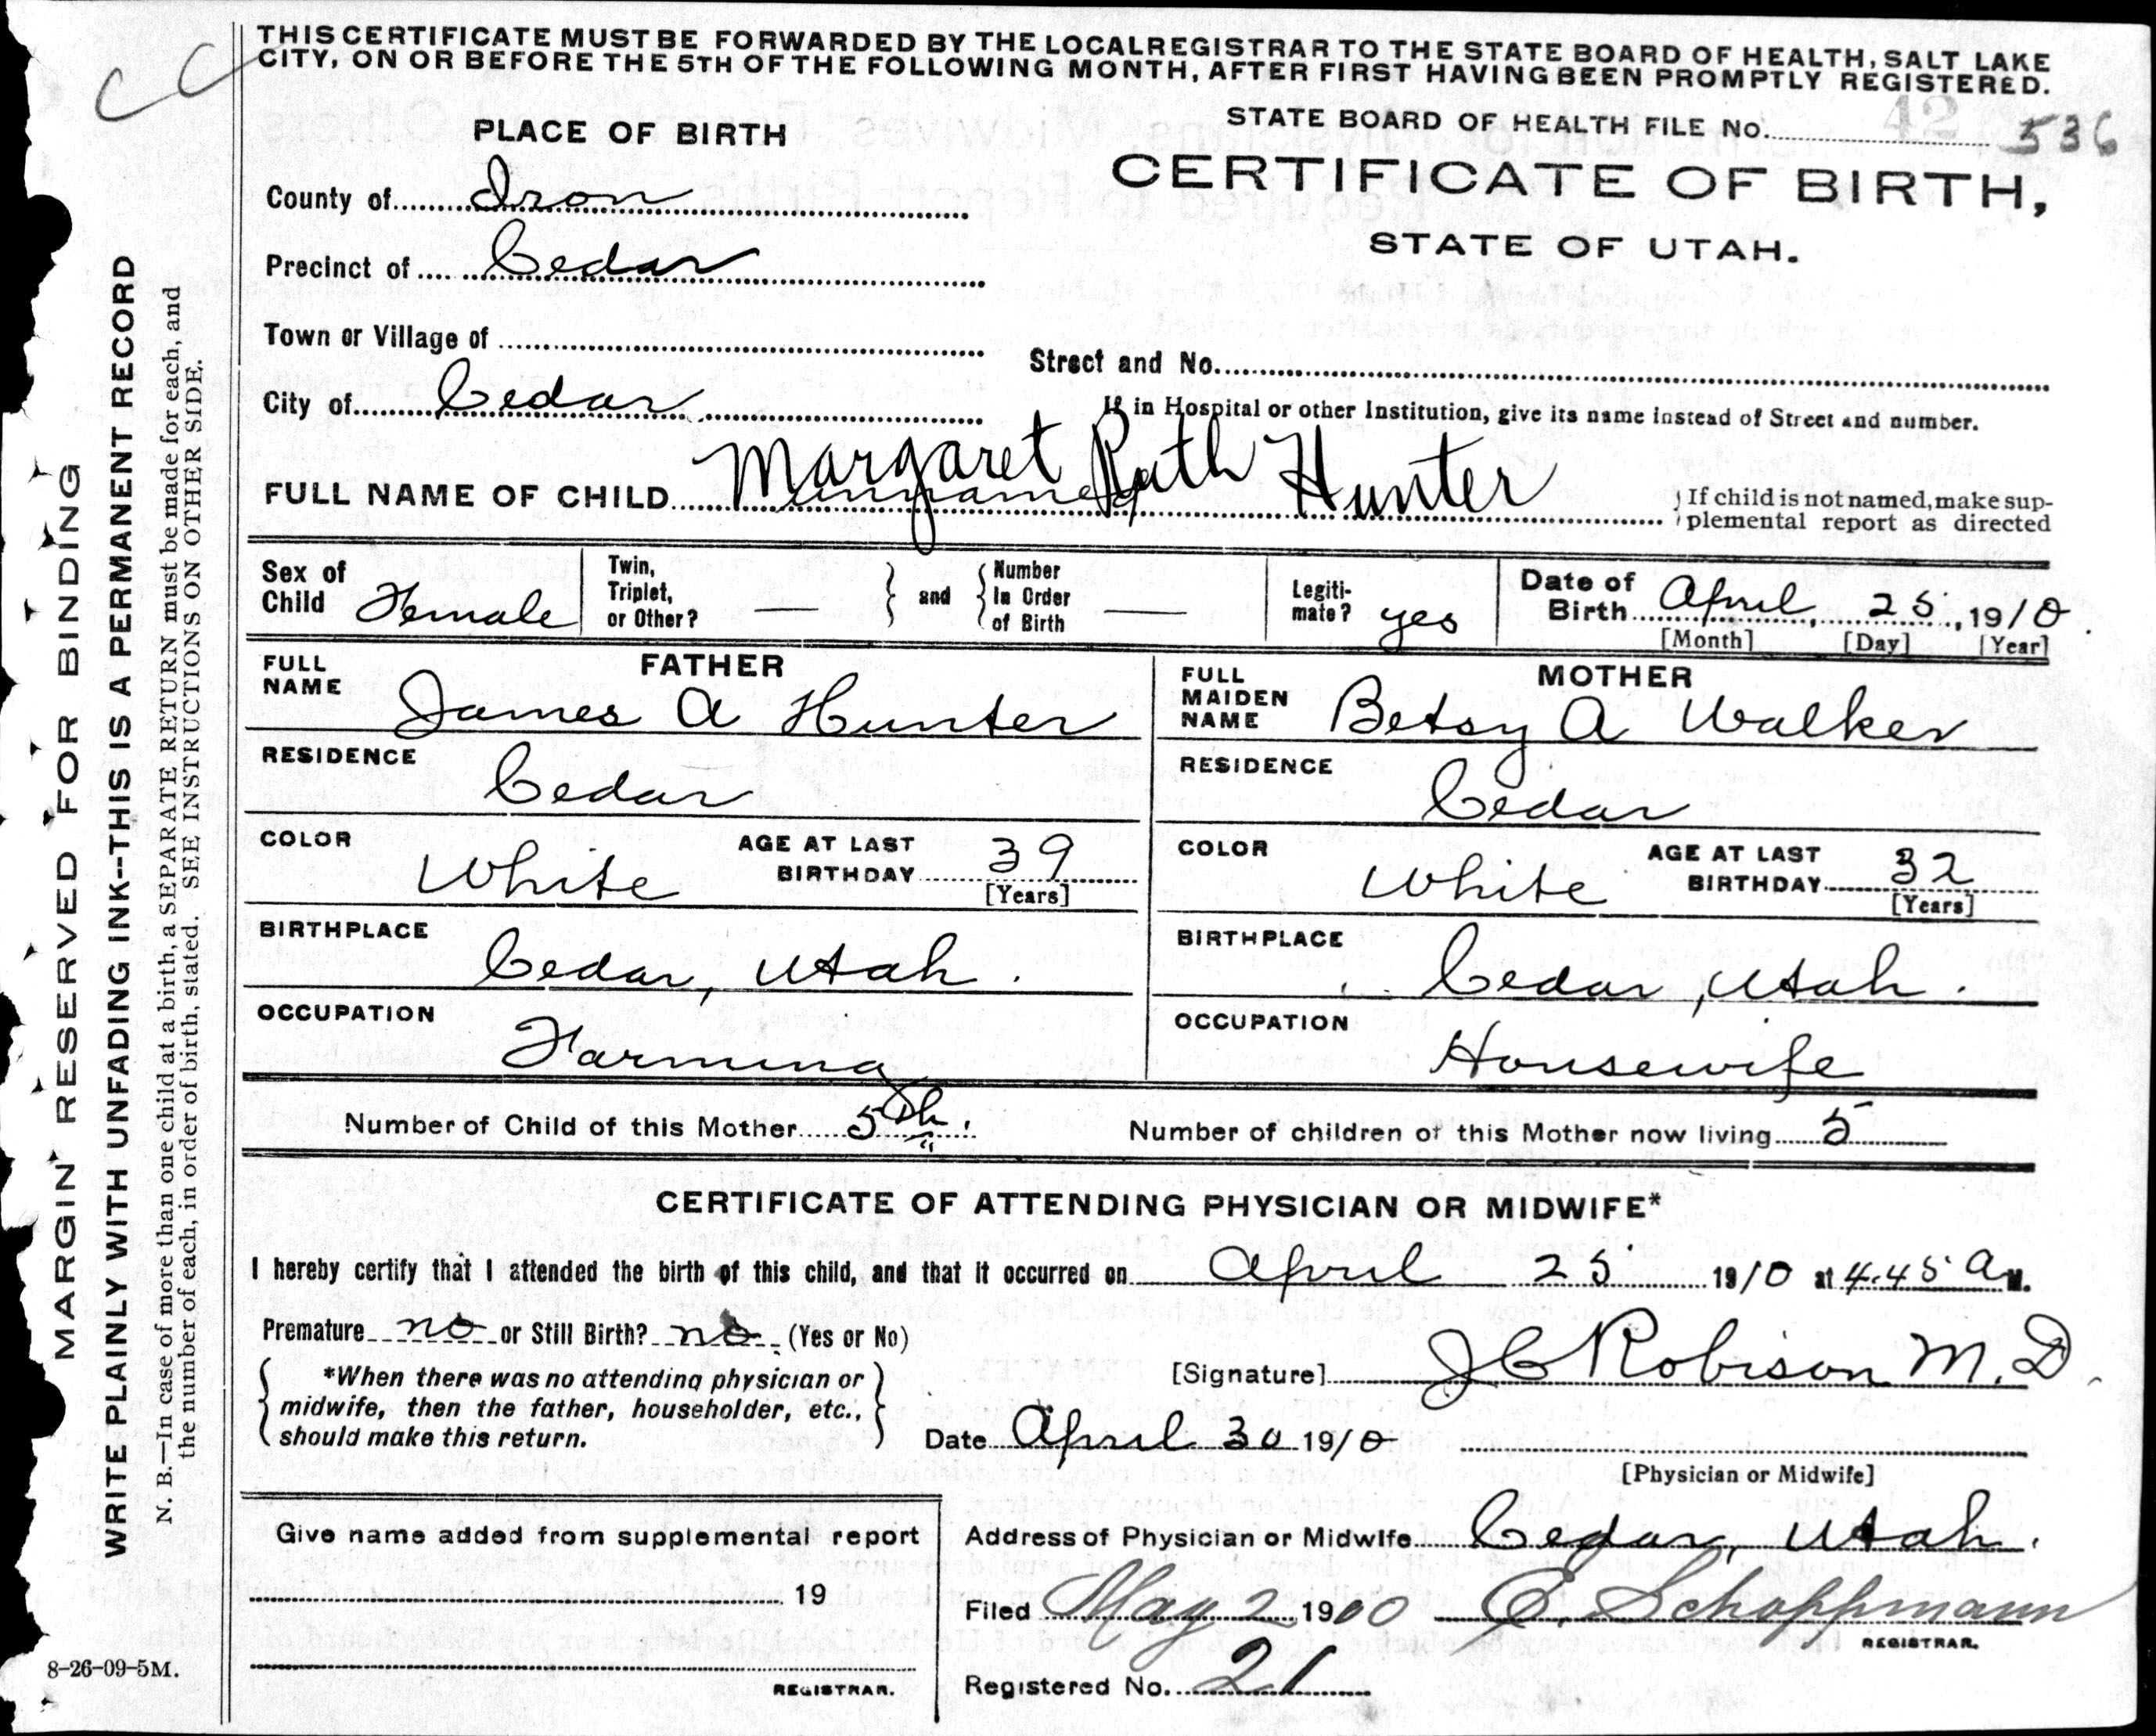 CC
THIS CERTIFICATE MUST BE FORWARDED BY THE LOCAL REGISTRAR TO THE STATE BOARD OF HEALTH, SALT LAKE
CITY, ON OR BEFORE THE 5TH OF THE FOLLOWING MONTH, AFTER FIRST HAVING BEEN PROMPTLY REGISTERED.
STATE BOARD OF HEALTH FILE No. 42 536
PLACE OF BIRTH
CERTIFICATE OF BIRTH,
STATE OF UTAH.
County of Iron
Precinct of Cedar
Town or Village of
Street and No.
City of Cedar
If in Hospital or other Institution, give its name instead of Street and number.
FULL NAME OF CHILD Margaret Ruth Hunter
unnamed
If child is not named, make sup-
plemental report as directed
Sex of Child Female
Twin, Triplet, or Other? —
and
Number In Order of Birth —
Legiti-mate? yes
Date of Birth April 25, 1910
[Month] [Day] [Year]
FATHER
FULL NAME James A Hunter
RESIDENCE Cedar
COLOR White AGE AT LAST BIRTHDAY 39
[Years]
BIRTHPLACE Cedar, Utah.
OCCUPATION Farming
MOTHER
FULL MAIDEN NAME Betsy A Walker
RESIDENCE Cedar
COLOR White AGE AT LAST BIRTHDAY 32
[Years]
BIRTHPLACE Cedar, Utah.
OCCUPATION Housewife
Number of Child of this Mother 5th.
Number of children of this Mother now living 5
CERTIFICATE OF ATTENDING PHYSICIAN OR MIDWIFE*
I hereby certify that I attended the birth of this child, and that it occurred on April 25 1910 at 4.45 a M.
Premature no or Still Birth? no (Yes or No)
*When there was no attending physician or
midwife, then the father, householder, etc.,
should make this return.
[Signature] J C Robison M.D.
Date April 30 1910
[Physician or Midwife]
Give name added from supplemental report
19
REGISTRAR.
Address of Physician or Midwife Cedar, Utah.
Filed May 2 1900 E. Schoppmann
REGISTRAR.
Registered No. 21
MARGIN RESERVED FOR BINDING
WRITE PLAINLY WITH UNFADING INK--THIS IS A PERMANENT RECORD
N. B.—In case of more than one child at a birth, a SEPARATE RETURN must be made for each, and
the number of each, in order of birth, stated. SEE INSTRUCTIONS ON OTHER SIDE.
8-26-09-5M.